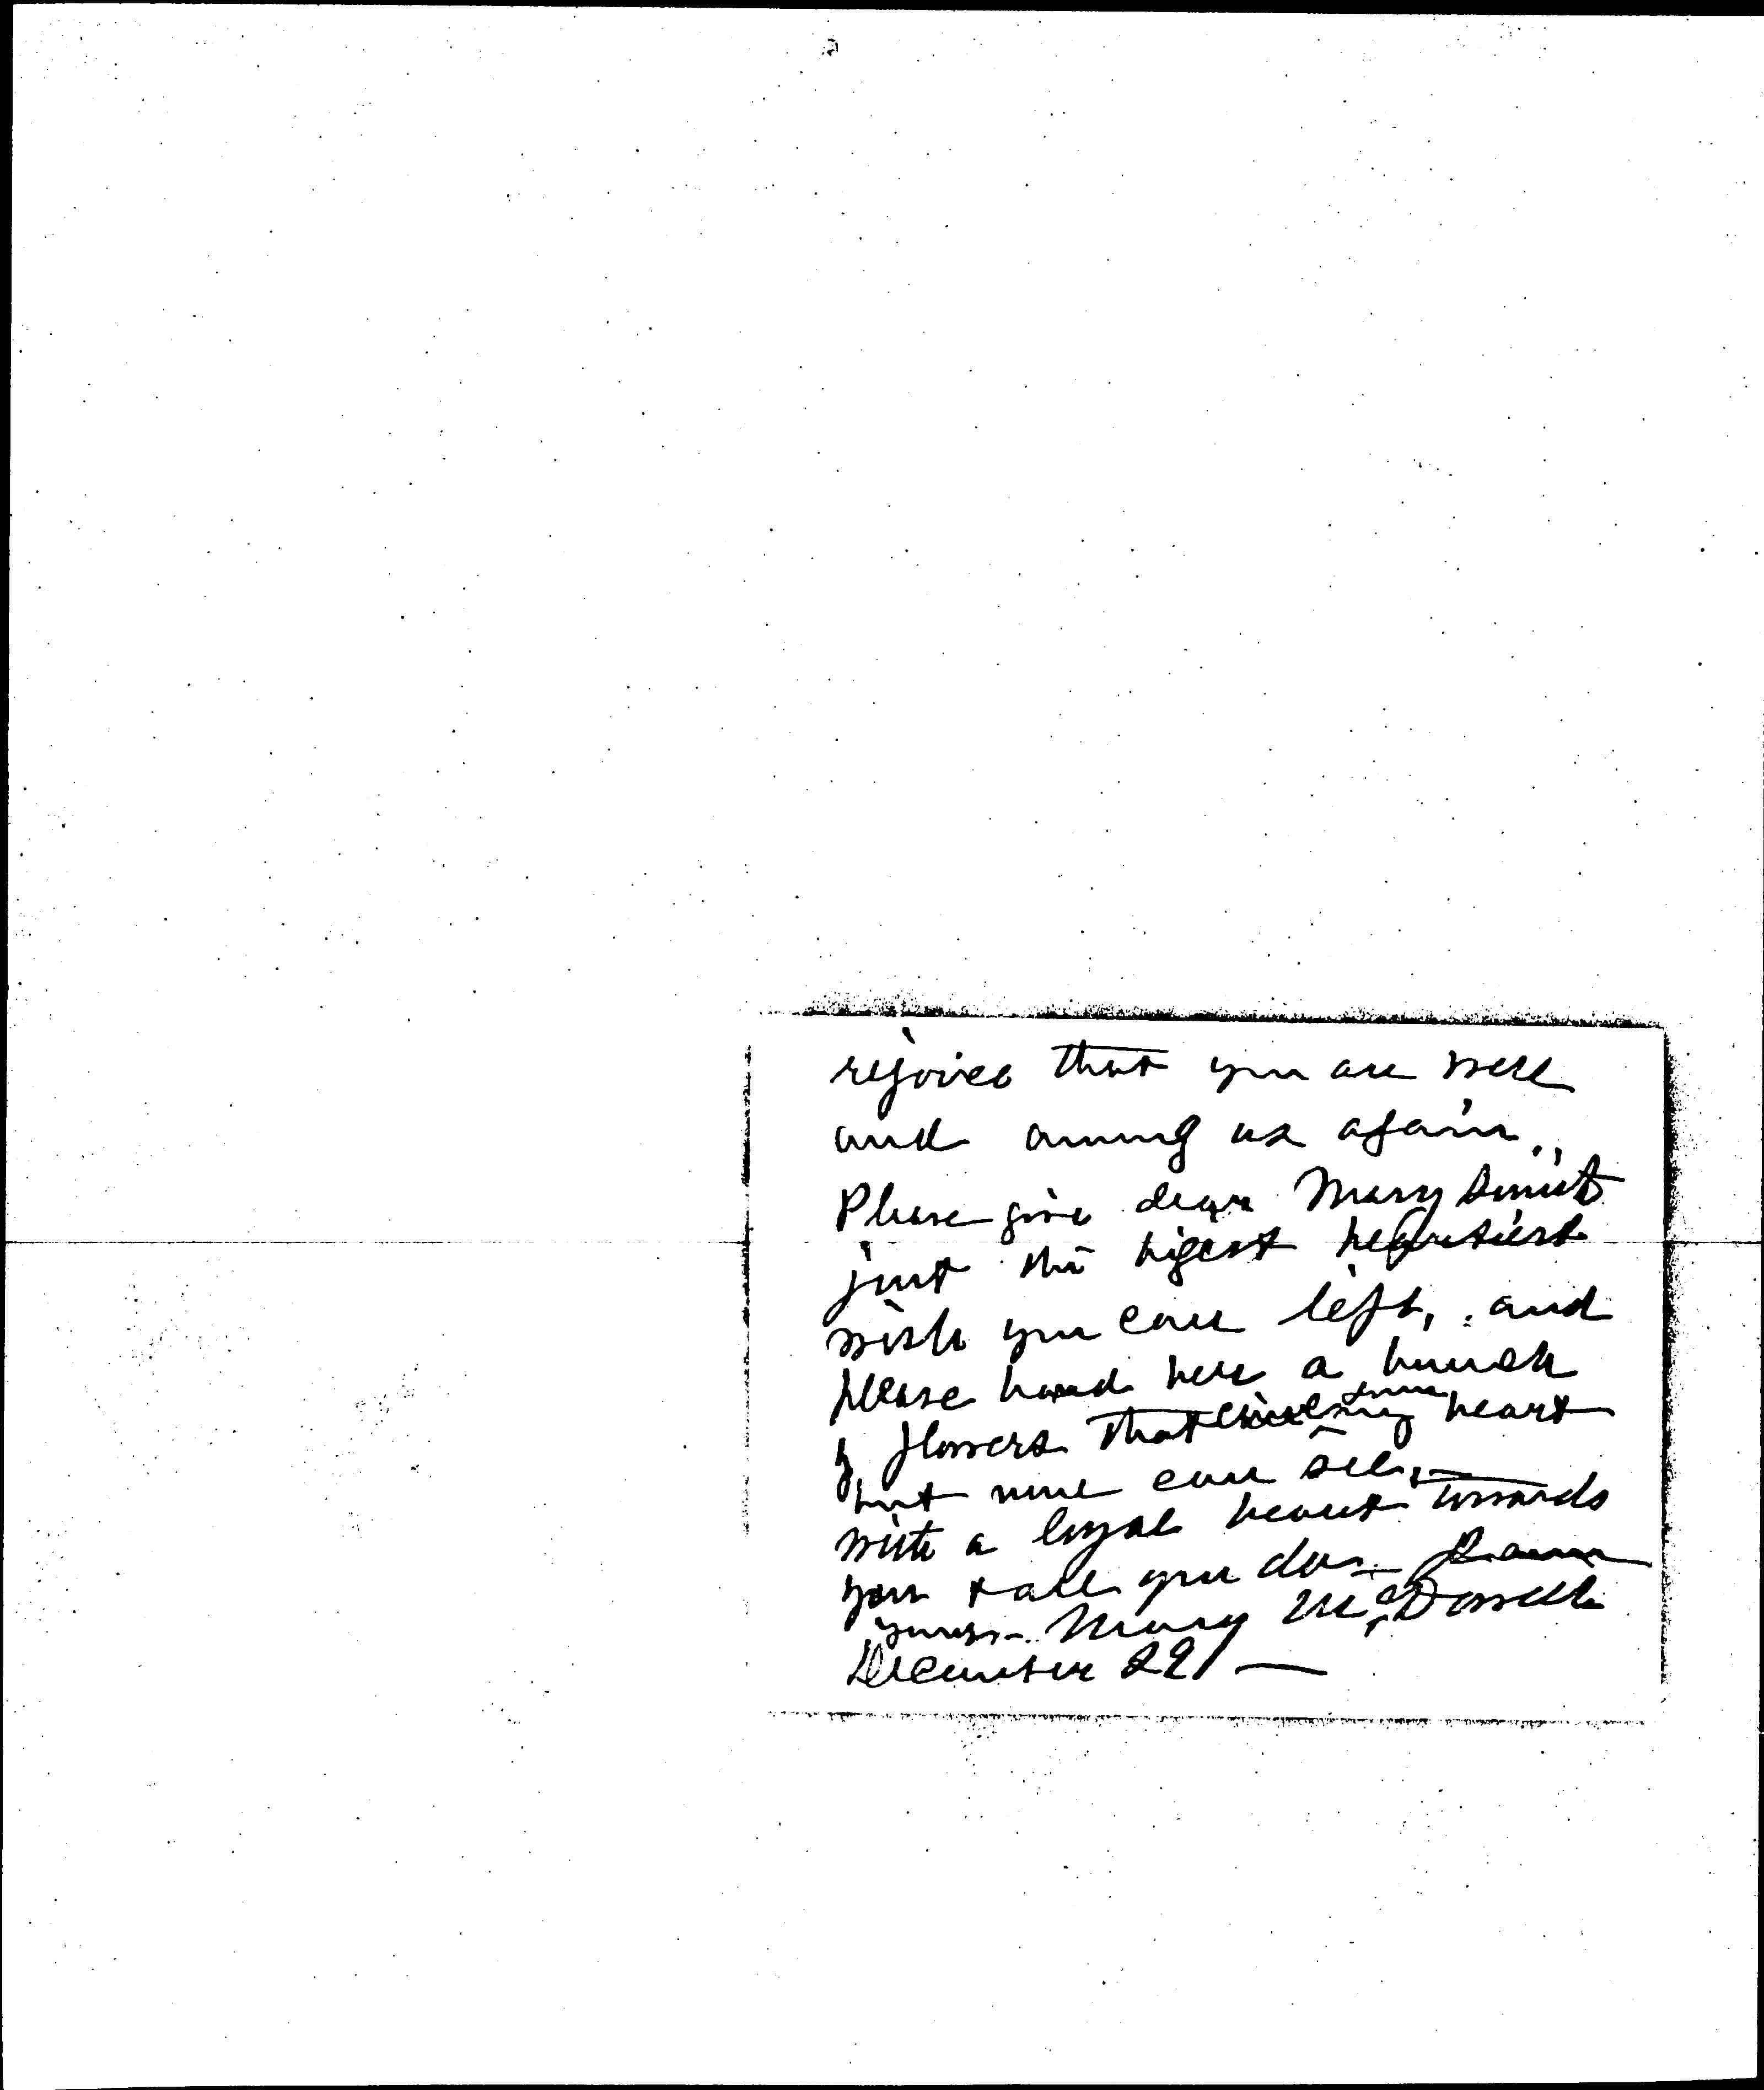 rejoice that you are well
and among us again.
Please give dear Mary Smith
just the bigest heartiest
wish you can left, and
please hand here a bunch
of flowers that my heart
but none can see,
with a loyal heart towards
you & all you do — I am
yours — Mary McDowell
December 29 —